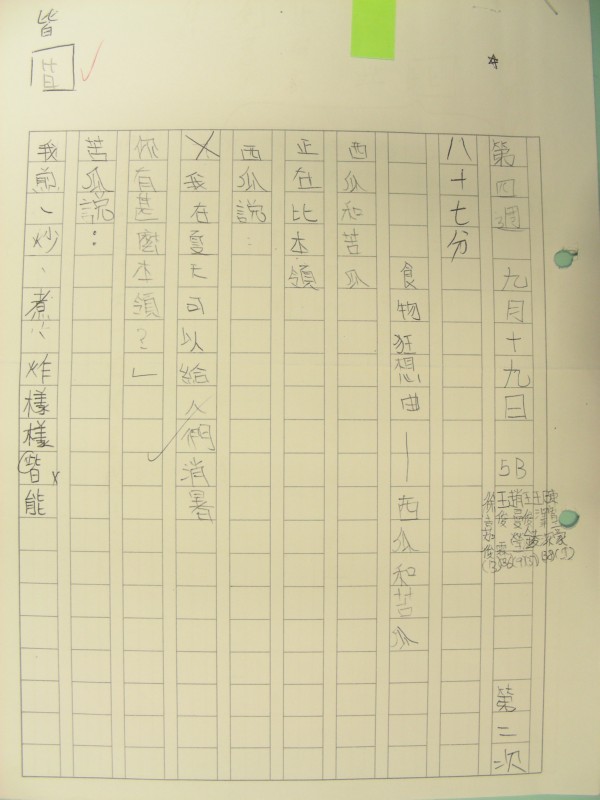 皆
皆
第四週 九月十九日 5B 第二次
八十七分
食物狂想曲—西瓜和苦瓜
西瓜和苦瓜
正在比本領
西瓜說：
我在夏天可以給人們消暑
你有甚麼本領？」
苦瓜說：
我煎、炒、煮、炸樣樣皆能